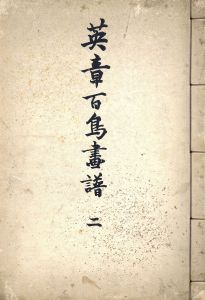 英章百鳥畫譜 二